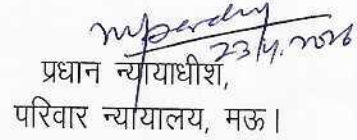 23/4.2026
प्रधान न्यायाधीश,
परिवार न्यायालय, मऊ।